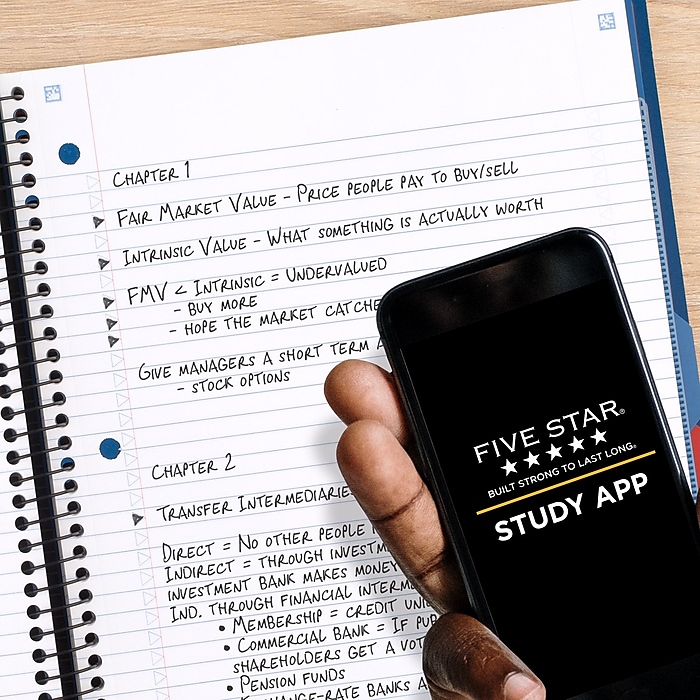 CHAPTER 1
FAIR MARKET VALUE - PRICE PEOPLE PAY TO BUY/SELL
INTRINSIC VALUE - WHAT SOMETHING IS ACTUALLY WORTH
FMV < INTRINSIC = UNDERVALUED
- BUY MORE
- HOPE THE MARKET
GIVE MANAGERS A SHORT TERM
- STOCK OPTIONS
CHAPTER 2
TRANSFER
DIRECT = NO OTHER PEOPLE
INDIRECT = THROUGH
INVESTMENT BANK MAKES MONEY
IND. THROUGH FINANCIAL
• MEMBERSHIP = CREDIT
• COMMERCIAL BANK = IF
SHAREHOLDERS GET A
• PENSION FUNDS
BANKS
FIVE STAR®
★★★★★
BUILT STRONG TO LAST LONG®
STUDY APP